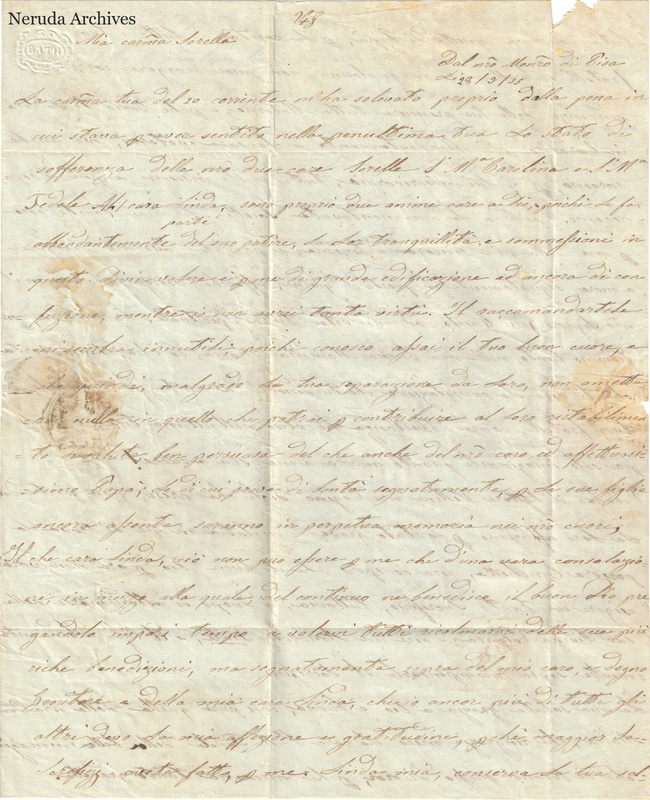 Neruda Archives
BATH
Mia carm̃a Sorella
Dal nr̃o Monr̃o di Pisa
Li 28/9/35
La carm̃a tua del 20 corrente m'ha solevato proprio dalla pena in
cui stava p aver sentito nella penultima tua lo stato di
sofferenza delle nr̃e due care Sorelle Sr Ma Carolina e Sr Ma
Fedele Ah! cara Linda, sono proprio due anime care a Dio, poichè le fa
parte
abbondantemente del suo patire, la lor tranquillità, e sommessione in
questo Divin volere è p me di grande edificazione ed ancora di con
fuzione, mentre io non avrei tanta virtù. Il raccomandartele
mi sembra innutile poichè conosco assai il tuo buon cuore, e
malgrado la tua separazione da loro, non ometta
nulla in quello che potrai p contribuire al loro ristabilimen
to in salute, ben persuasa del che anche del nr̃o caro ed affettuosis
simo Papà, le di cui prove di bontà segnatamente, p le sue figlie
ancora assente, saranno in perpetua memoria nei nr̃i cuori;
Il che cara Linda, ciò non può essere p me che d'una vera consolazio
ne, in mezzo alla quale del continuo ne benedico il buon Dio pre
gandolo in pari tempo a volervi tutti ricolmarvi delle sue più
riche benedizioni, ma segnatamente sopra del mio caro, e degno
Genitore e della mia cara Linda, chè io ancor più di tutti gli
altri devo la mia affezione e gratitudine, p chè maggior sa-
crifizi avete fatto p me. Linda mia, conserva la tua sal-